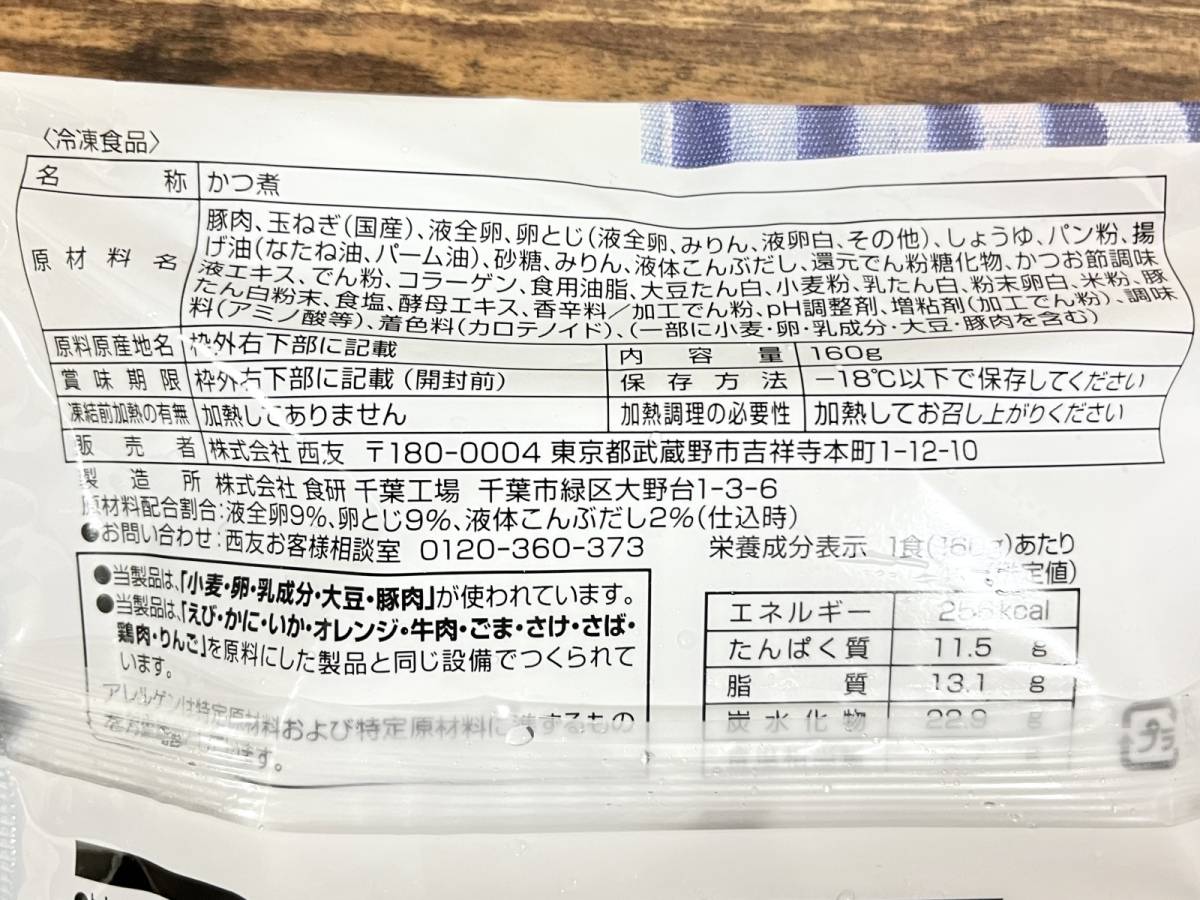 〈冷凍食品〉
名称 かつ煮
原材料名 豚肉、玉ねぎ(国産)、液全卵、卵とじ(液全卵、みりん、液卵白、その他)、しょうゆ、パン粉、揚
げ油(なたね油、パーム油)、砂糖、みりん、液体こんぶだし、還元でん粉糖化物、かつお節調味
液エキス、でん粉、コラーゲン、食用油脂、大豆たん白、小麦粉、乳たん白、粉末卵白、米粉、豚
たん白粉末、食塩、酵母エキス、香辛料/加工でん粉、pH調整剤、増粘剤(加工でん粉)、調味
料(アミノ酸等)、着色料(カロテノイド)、(一部に小麦・卵・乳成分・大豆・豚肉を含む)
原料原産地名 枠外右下部に記載 内容量 160g
賞味期限 枠外右下部に記載(開封前) 保存方法 −18℃以下で保存してください
凍結前加熱の有無 加熱してありません 加熱調理の必要性 加熱してお召し上がりください
販売者 株式会社 西友 〒180-0004 東京都武蔵野市吉祥寺本町1-12-10
製造所 株式会社 食研 千葉工場 千葉市緑区大野台1-3-6
原材料配合割合:液全卵9%、卵とじ9%、液体こんぶだし2%(仕込時)
●お問い合わせ:西友お客様相談室 0120-360-373
●当製品は、「小麦・卵・乳成分・大豆・豚肉」が使われています。
●当製品は、「えび・かに・いか・オレンジ・牛肉・ごま・さけ・さば・
鶏肉・りんご」を原料にした製品と同じ設備でつくられて
います。
アレルゲンは特定原材料および特定原材料に準ずるもの
ます。
栄養成分表示 1食(160g)あたり
(推定値)
エネルギー kcal
たんぱく質 11.5 g
脂質 13.1 g
炭水化物 22.9 g
プラ